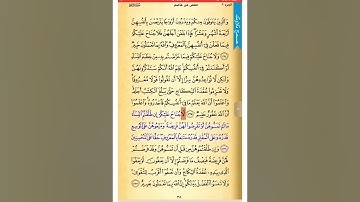 الجزء ٢
حفص عن عاصم
وَالَّذِينَ يُتَوَفَّوْنَ مِنكُمْ وَيَذَرُونَ أَزْوَاجًا يَتَرَبَّصْنَ بِأَنفُسِهِنَّ
أَرْبَعَةَ أَشْهُرٍ وَعَشْرًا فَإِذَا بَلَغْنَ أَجَلَهُنَّ فَلَا جُنَاحَ عَلَيْكُمْ
فِيمَا فَعَلْنَ فِي أَنفُسِهِنَّ بِالْمَعْرُوفِ وَاللَّهُ بِمَا تَعْمَلُونَ خَبِيرٌ ٢٣٤
وَلَا جُنَاحَ عَلَيْكُمْ فِيمَا عَرَّضْتُم بِهِ مِنْ خِطْبَةِ النِّسَاءِ أَوْ
أَكْنَنتُمْ فِي أَنفُسِكُمْ عَلِمَ اللَّهُ أَنَّكُمْ سَتَذْكُرُونَهُنَّ
وَلَٰكِن لَّا تُوَاعِدُوهُنَّ سِرًّا إِلَّا أَن تَقُولُوا قَوْلًا مَّعْرُوفًا
وَلَا تَعْزِمُوا عُقْدَةَ النِّكَاحِ حَتَّىٰ يَبْلُغَ الْكِتَابُ أَجَلَهُ
وَاعْلَمُوا أَنَّ اللَّهَ يَعْلَمُ مَا فِي أَنفُسِكُمْ فَاحْذَرُوهُ وَاعْلَمُوا
أَنَّ اللَّهَ غَفُورٌ حَلِيمٌ ٢٣٥ لَّا جُنَاحَ عَلَيْكُمْ إِن طَلَّقْتُمُ النِّسَاءَ
مَا لَمْ تَمَسُّوهُنَّ أَوْ تَفْرِضُوا لَهُنَّ فَرِيضَةً وَمَتِّعُوهُنَّ عَلَى الْمُوسِعِ
قَدَرُهُ وَعَلَى الْمُقْتِرِ قَدَرُهُ مَتَاعًا بِالْمَعْرُوفِ حَقًّا عَلَى الْمُحْسِنِينَ
٢٣٦ وَإِن طَلَّقْتُمُوهُنَّ مِن قَبْلِ أَن تَمَسُّوهُنَّ وَقَدْ فَرَضْتُمْ
لَهُنَّ فَرِيضَةً فَنِصْفُ مَا فَرَضْتُمْ إِلَّا أَن يَعْفُونَ أَوْ يَعْفُوَا
الَّذِي بِيَدِهِ عُقْدَةُ النِّكَاحِ وَأَن تَعْفُوا أَقْرَبُ لِلتَّقْوَىٰ
وَلَا تَنسَوُا الْفَضْلَ بَيْنَكُمْ إِنَّ اللَّهَ بِمَا تَعْمَلُونَ بَصِيرٌ ٢٣٧
٣٨